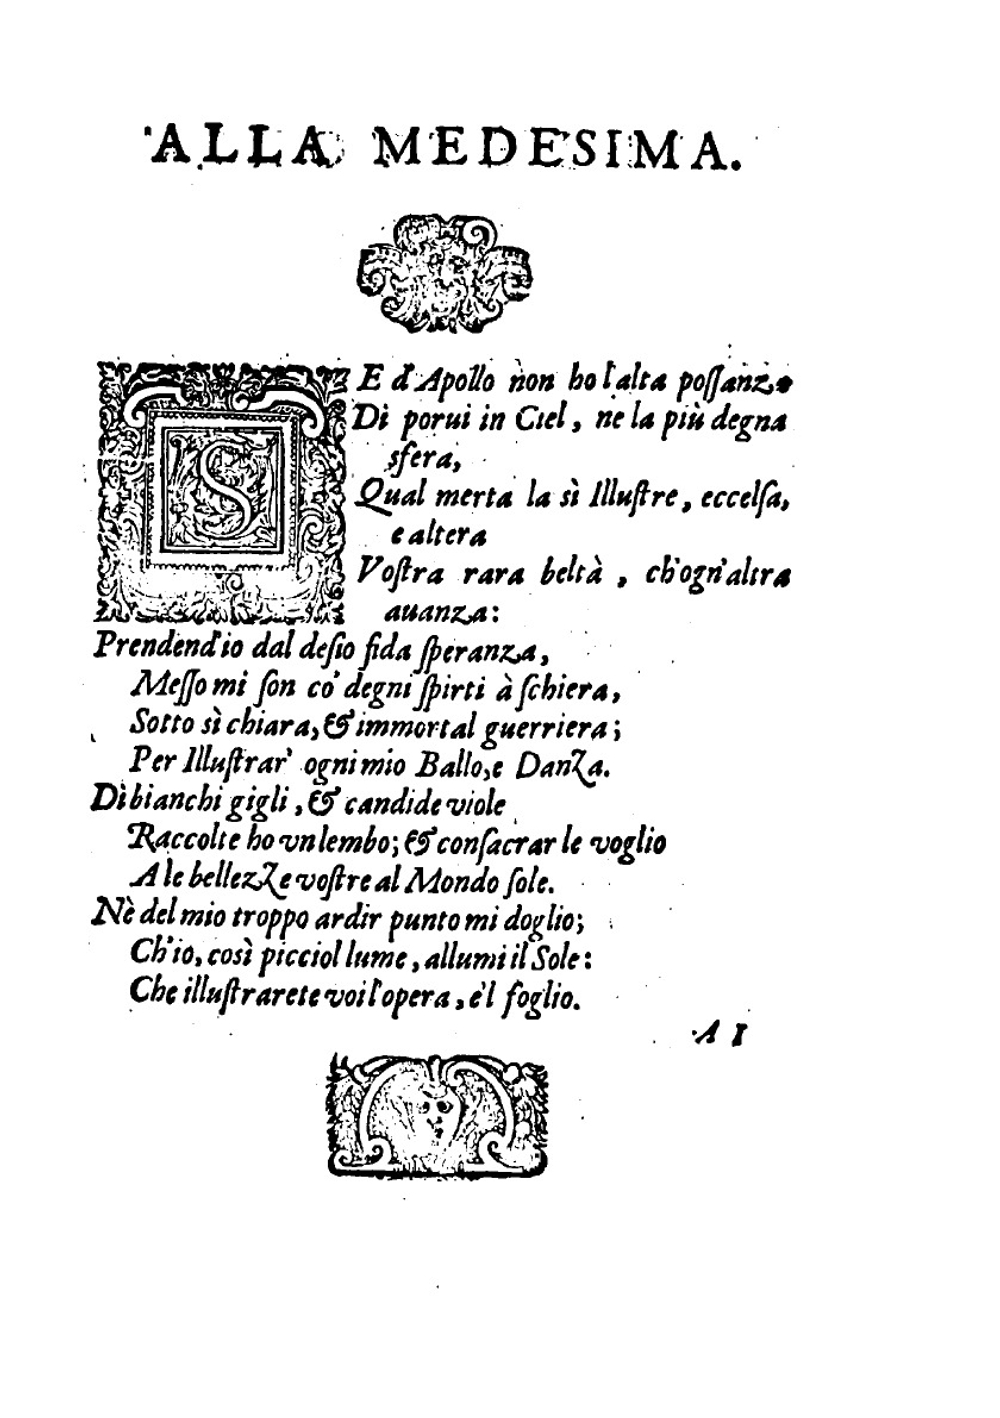 ALLA MEDESIMA.
SE d'Apollo non ho l'alta possanza
Di porui in Ciel, ne la più degna
sfera,
Qual merta la sì Illustre, eccelsa,
e altera
Vostra rara beltà, ch'ogn'altra
auanza:
Prendend'io dal desio fida speranza,
Messo mi son co' degni spirti à schiera,
Sotto sì chiara, & immortal guerriera;
Per Illustrar' ogni mio Ballo, e Danza.
Di bianchi gigli, & candide viole
Raccolte ho vn lembo; & consacrar le voglio
A le bellezze vostre al Mondo sole.
Nè del mio troppo ardir punto mi doglio;
Ch'io, così picciol lume, allumi il Sole:
Che illustrarete voi l'opera, e'l foglio.
A I